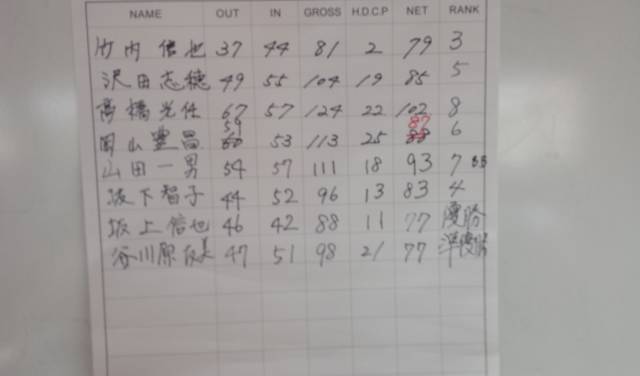 NAME OUT IN GROSS H.D.C.P NET RANK
竹内信也 37 44 81 2 79 3
沢田志穂 49 55 104 19 85 5
高橋光任 67 57 124 22 102 8
岡山豊昌 59 53 113 25 87 6
山田一男 54 57 111 18 93 7 BB
坂下智子 44 52 96 13 83 4
坂上信也 46 42 88 11 77 優勝
谷川原 美 47 51 98 21 77 準優勝